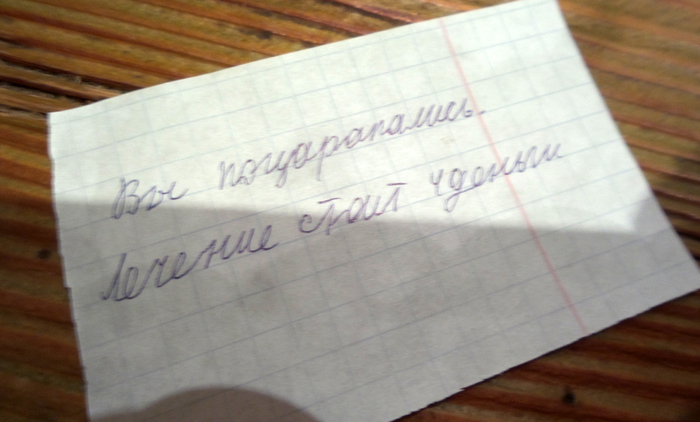 Вы поцарапались.
Лечение стоит 4 деньги